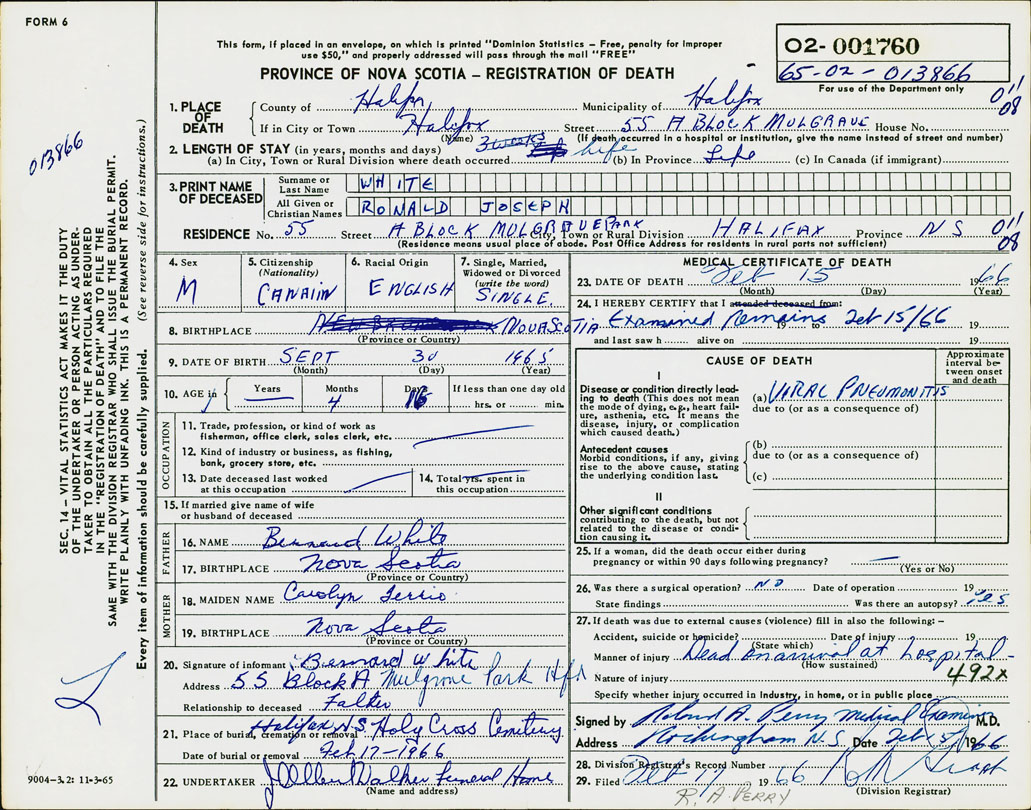 FORM 6
This form, if placed in an envelope, on which is printed "Dominion Statistics – Free, penalty for improper
use $50," and properly addressed will pass through the mail "FREE"
PROVINCE OF NOVA SCOTIA – REGISTRATION OF DEATH
02- 001760
65-02-013866
For use of the Department only
013866
SEC. 14 – VITAL STATISTICS ACT MAKES IT THE DUTY
OF THE UNDERTAKER OR PERSON ACTING AS UNDER-
TAKER TO OBTAIN ALL THE PARTICULARS REQUIRED
IN THE "REGISTRATION OF DEATH" AND TO FILE THE
SAME WITH THE DIVISION REGISTRAR WHO SHALL ISSUE THE BURIAL PERMIT.
WRITE PLAINLY WITH UNFADING INK. THIS IS A PERMANENT RECORD.
Every item of information should be carefully supplied. (See reverse side for instructions.)
1. PLACE OF DEATH
County of Halifax Municipality of Halifax 011
08
If in City or Town Halifax Street 55 A BLOCK MULGRAVE House No.
(Name) (If death occurred in a hospital or institution, give the name instead of street and number)
2. LENGTH OF STAY (in years, months and days) 3 weeks life
(a) In City, Town or Rural Division where death occurred (b) In Province Life (c) In Canada (if immigrant)
3. PRINT NAME OF DECEASED
Surname or Last Name WHITE
All Given or Christian Names RONALD JOSEPH
RESIDENCE No. 55 Street A BLOCK MULGRAVE PARK City, Town or Rural Division HALIFAX Province NS 011
08
(Residence means usual place of abode. Post Office Address for residents in rural parts not sufficient)
4. Sex
M
5. Citizenship
(Nationality)
CANAIN
6. Racial Origin
ENGLISH
7. Single, Married,
Widowed or Divorced
(write the word)
SINGLE
8. BIRTHPLACE NOVA SCOTIA
(Province or Country)
9. DATE OF BIRTH SEPT 30 1965
(Month) (Day) (Year)
10. AGE in Years Months 4 Days 16 If less than one day old
hrs. or min.
OCCUPATION
11. Trade, profession, or kind of work as
fisherman, office clerk, sales clerk, etc.
12. Kind of industry or business, as fishing,
bank, grocery store, etc.
13. Date deceased last worked
at this occupation
14. Total yrs. spent in
this occupation
15. If married give name of wife
or husband of deceased
FATHER
16. NAME Bernard White
17. BIRTHPLACE Nova Scotia
(Province or Country)
MOTHER
18. MAIDEN NAME Carolyn Terrio
19. BIRTHPLACE Nova Scotia
(Province or Country)
20. Signature of informant Bernard White
Address 55 Block A Mulgrove Park Hfx
Relationship to deceased Father
21. Place of burial, cremation or removal Halifax N.S. Holy Cross Cemetery
Date of burial or removal Feb 17-1966
22. UNDERTAKER J Allen Walker Funeral Home
(Name and address)
9004-3.2: 11-3-65
MEDICAL CERTIFICATE OF DEATH
23. DATE OF DEATH Feb 15 1966
(Month) (Day) (Year)
24. I HEREBY CERTIFY that I attended deceased from:
Examined Remains 19 to Feb 15/66 19
and last saw h alive on 19
CAUSE OF DEATH
Approximate
interval be-
tween onset
and death
I
Disease or condition directly lead-
ing to death (This does not mean
the mode of dying, e.g., heart fail-
ure, asthenia, etc. It means the
disease, injury, or complication
which caused death.)
(a) VIRAL PNEUMONITIS
due to (or as a consequence of)
Antecedent causes
Morbid conditions, if any, giving
rise to the above cause, stating
the underlying condition last.
(b)
due to (or as a consequence of)
(c)
II
Other significant conditions
contributing to the death, but not
related to the disease or condi-
tion causing it.
25. If a woman, did the death occur either during
pregnancy or within 90 days following pregnancy?
(Yes or No)
26. Was there a surgical operation? NO Date of operation 19
State findings Was there an autopsy? yes
27. If death was due to external causes (violence) fill in also the following:–
Accident, suicide or homicide? Date of injury 19
(State which)
Manner of injury Dead on arrival at hospital –
(How sustained)
Nature of injury 492x
Specify whether injury occurred in industry, in home, or in public place
Signed by Roland A. Perry Medical Examiner M.D.
Address Rockingham N.S. Date Feb 15/ 1966
28. Division Registrar's Record Number
29. Filed Feb 17 1966
(Division Registrar)
R. A. PERRY